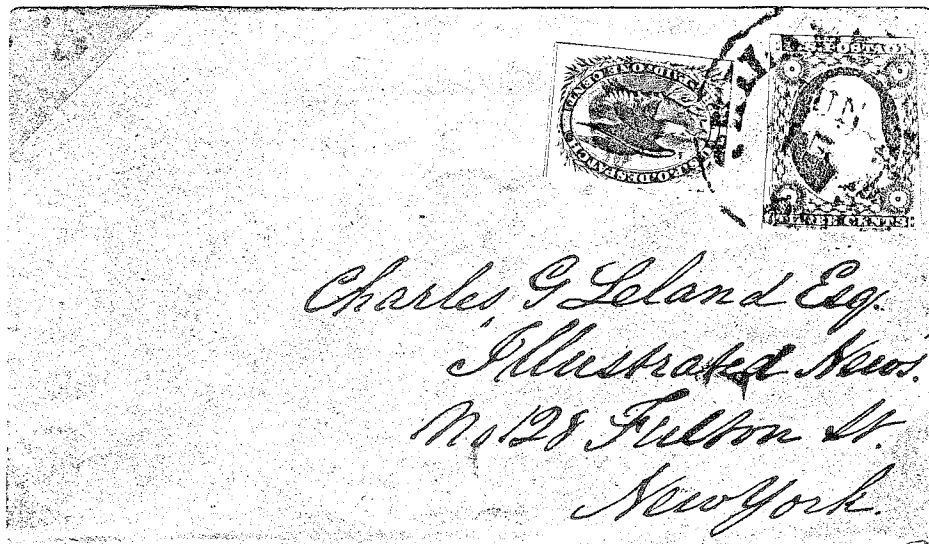 U.S.P.O.DESPATCH
U.S. POSTAGE
THREE CENTS
Charles G Leland Esq.
Illustrated News.
No 128 Fulton St.
New York.